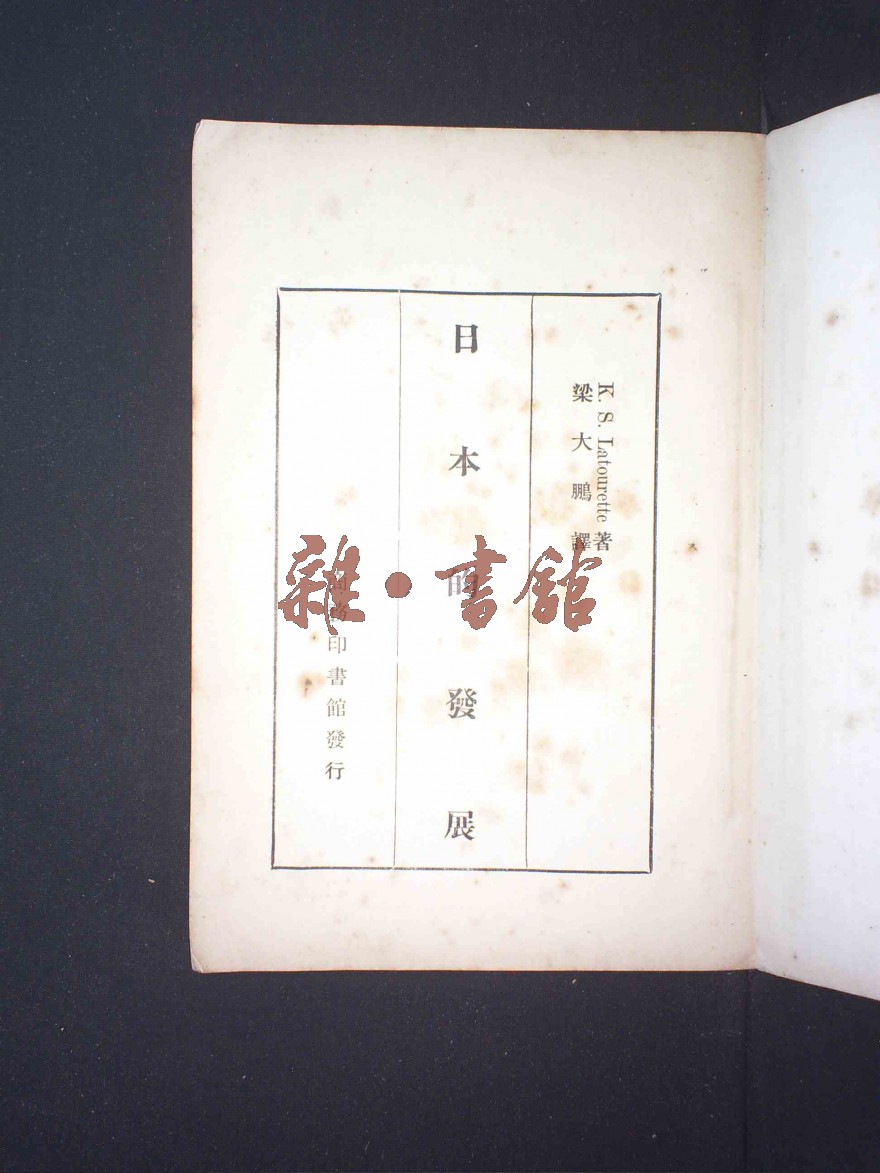 K. S. Latourette 著
梁大鵬譯
日本的發展
商務印書館發行
雜·書館